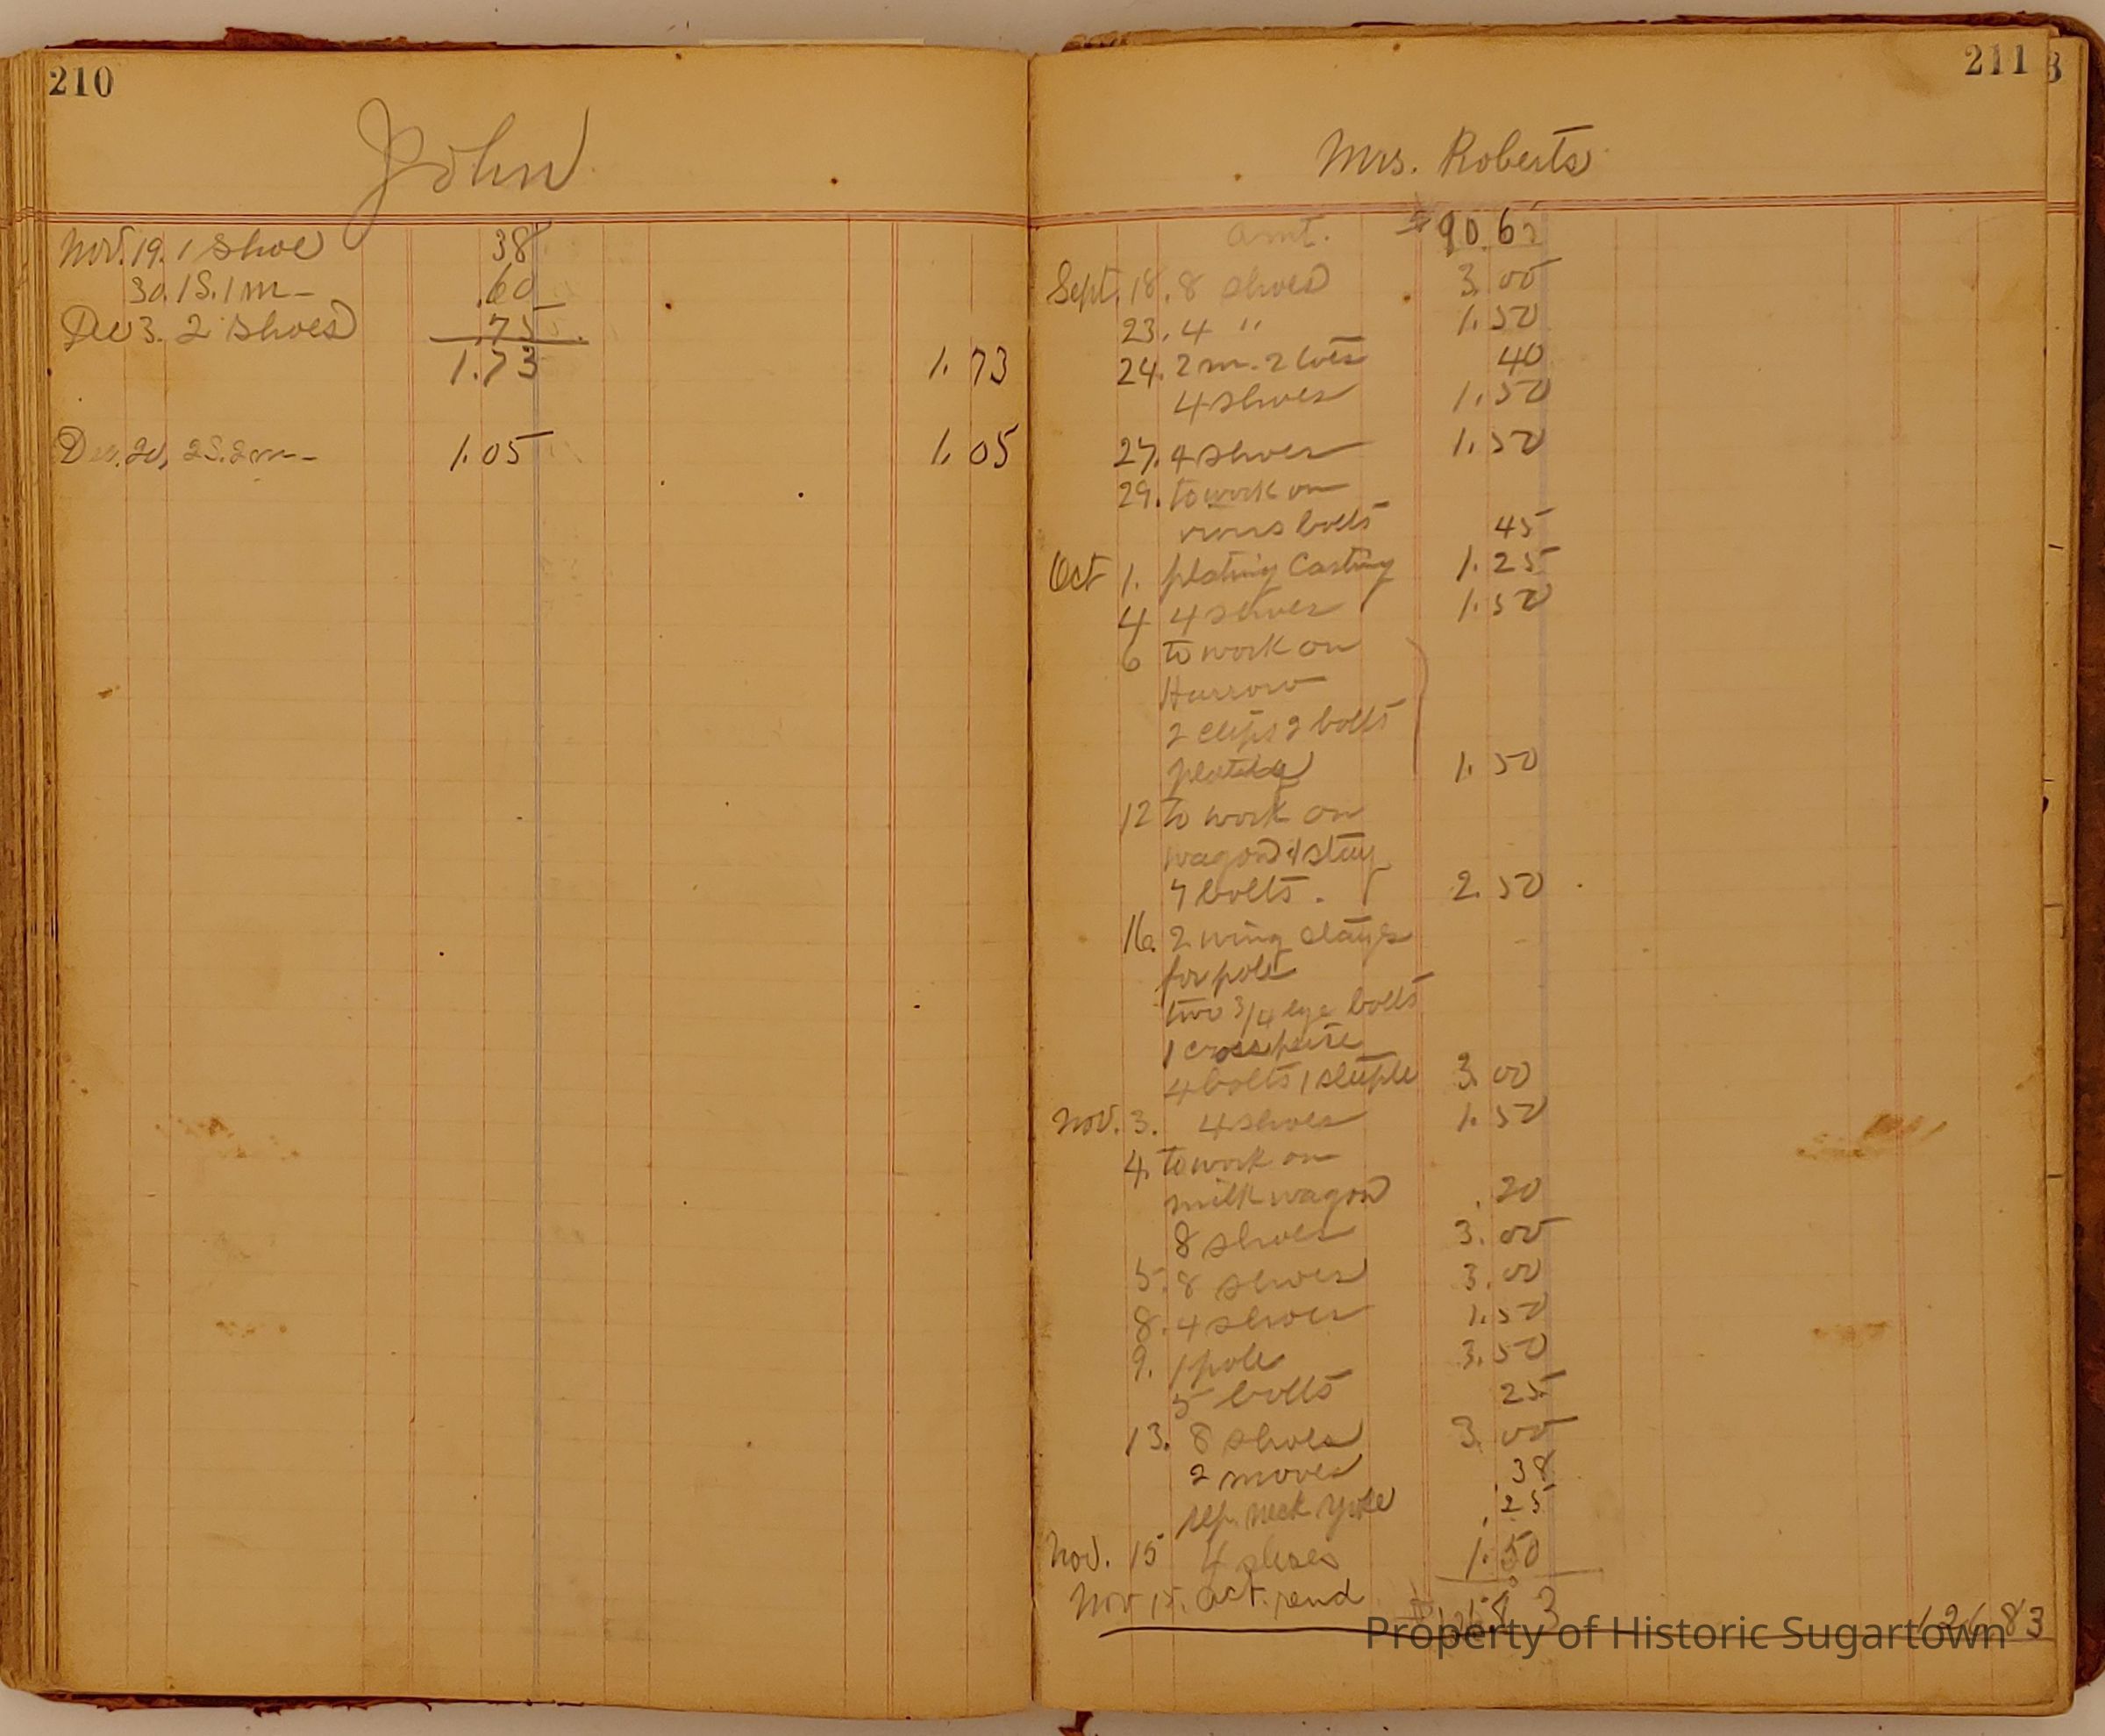 210
John
Nov. 19. 1 shoe 38
30. 1 S. 1 m .60
Dec 3. 2 shoes .75
1.73 1.73
Dec. 20, 2 S. 2 m 1.05 1.05
211
Mrs. Roberts
amt. $90.65
Sept. 18. 8 shoes 3.00
23. 4 " 1.50
24. 2 m. 2 toes 40
4 shoes 1.50
27. 4 shoes 1.50
29. to work on
bolts 45
Oct 1. plating Casting 1.25
4 4 shoes 1.50
6 to work on
Harrow
2 clips 2 bolts
1.50
12 to work on
wagon 1 stay
7 bolts. 2.50
16. 2 wing stays
for pole
two 3/4 eye bolts
1 crosspeise
4 bolts 1 steeple 3.00
Nov. 3. 4 shoes 1.50
4. to work on
milk wagon .20
8 shoes 3.00
5. 8 shoes 3.00
8. 4 shoes 1.50
9. 1 pole 3.50
5 bolts 25
13. 8 shoes 3.00
2 moves .38
rep. neck yoke .25
Nov. 15 4 shoes 1.50
Nov 15. act. rend 126.83
Property of Historic Sugartown